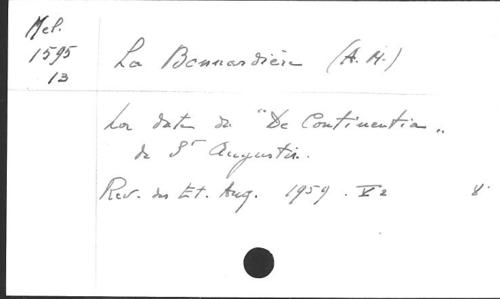 Mel.
1595
13
La Bonnardière (A. M.)
La date du "De Continentia"
de St Augustin.
Rev. des Et. Aug. 1959. V2 8°